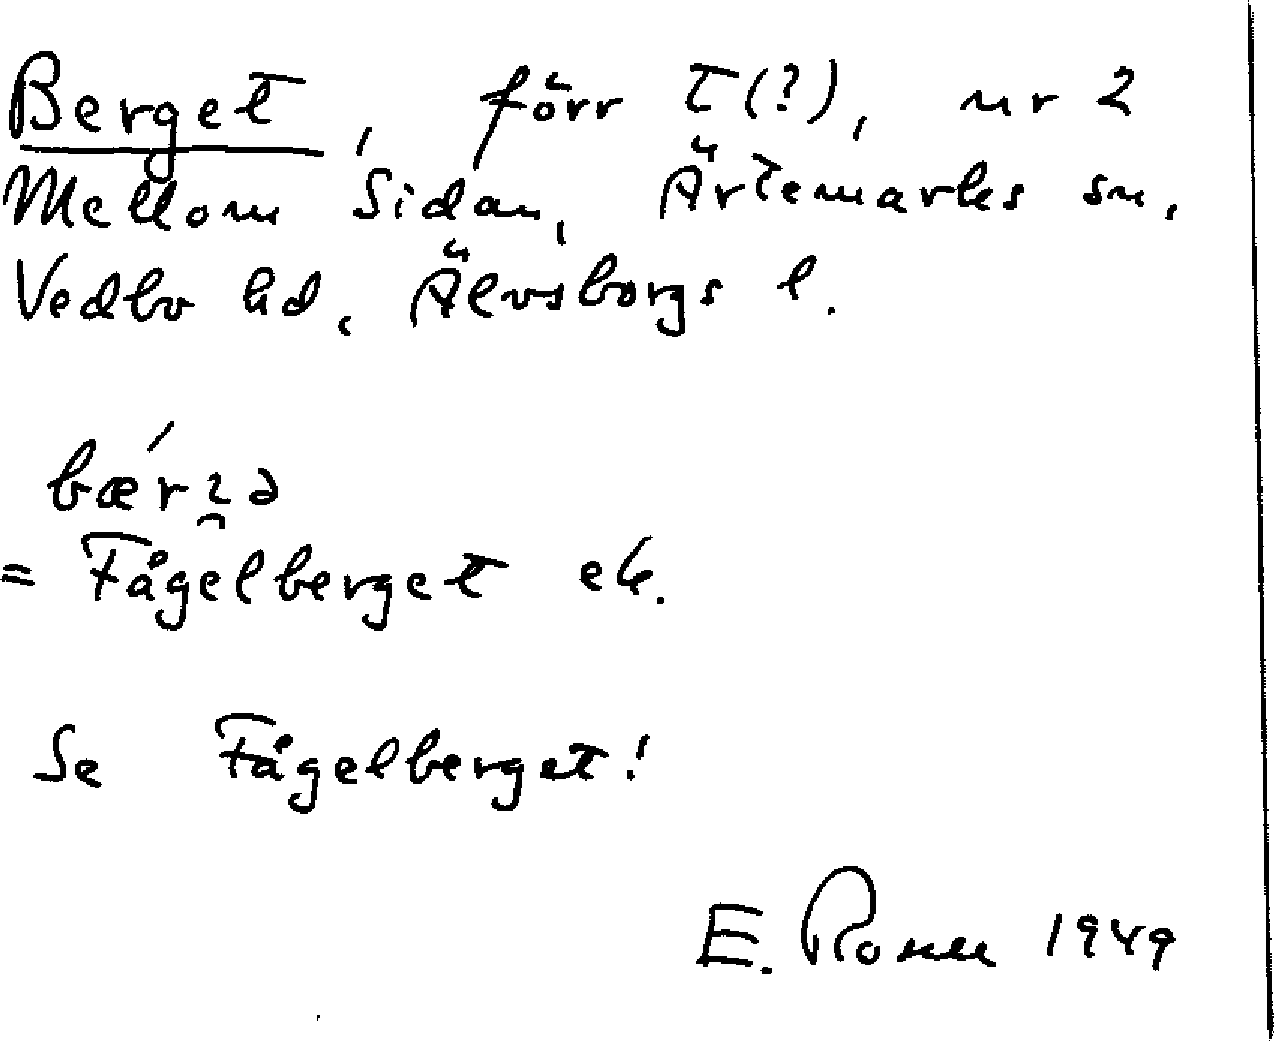 Berget, förr T(?), nr 2
Mellom Sidan, Ärtemarks sn,
Vedbo hd, Älvsborgs l.
= Fågelberget ek.
Se Fågelberget!
E. 1949